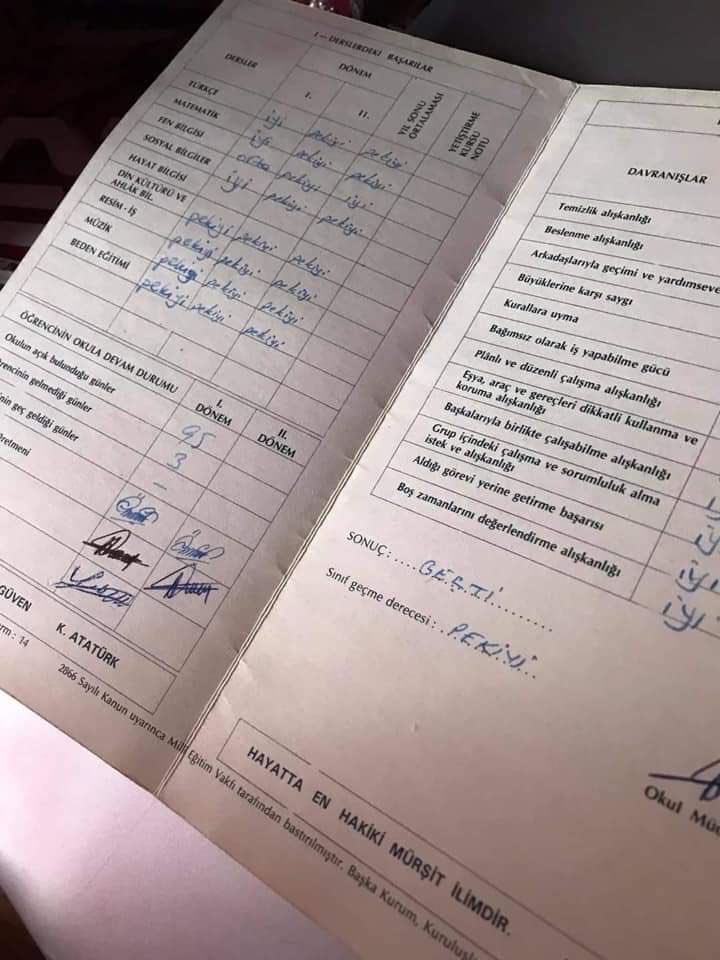 I — DERSLERDEKİ BAŞARILAR
DERSLER
DÖNEM
I.
II.
YIL SONU ORTALAMASI
YETİŞTİRME KURSU NOTU
TÜRKÇE iyi pekiyi pekiyi
MATEMATİK iyi pekiyi pekiyi
FEN BİLGİSİ orta pekiyi iyi
SOSYAL BİLGİLER iyi pekiyi
HAYAT BİLGİSİ
DİN KÜLTÜRÜ VE
AHLÂK BİL. pekiyi pekiyi pekiyi
RESİM - İŞ pekiyi pekiyi pekiyi
MÜZİK pekiyi pekiyi pekiyi
BEDEN EĞİTİMİ pekiyi pekiyi pekiyi
ÖĞRENCİNİN OKULA DEVAM DURUMU
I. DÖNEM
II. DÖNEM
Okulun açık bulunduğu günler 95
rencinin gelmediği günler 3
nin geç geldiği günler —
retmeni
GÜVEN
K. ATATÜRK
rm : 14
2866 Sayılı Kanun uyarınca Milli Eğitim Vakfı tarafından bastırılmıştır. Başka Kurum, Kuruluş
DAVRANIŞLAR
Temizlik alışkanlığı
Beslenme alışkanlığı
Arkadaşlarıyla geçimi ve yardımseve
Büyüklerine karşı saygı
Kurallara uyma
Bağımsız olarak iş yapabilme gücü
Plânlı ve düzenli çalışma alışkanlığı
Eşya, araç ve gereçleri dikkatli kullanma ve
koruma alışkanlığı
Başkalarıyla birlikte çalışabilme alışkanlığı
Grup içindeki çalışma ve sorumluluk alma
istek ve alışkanlığı
Aldığı görevi yerine getirme başarısı iyi
Boş zamanlarını değerlendirme alışkanlığı iyi
SONUÇ : ....GEÇTİ.........
Sınıf geçme derecesi : ..PEKİYİ...
Okul Müd
HAYATTA EN HAKİKİ MÜRŞİT İLİMDİR.